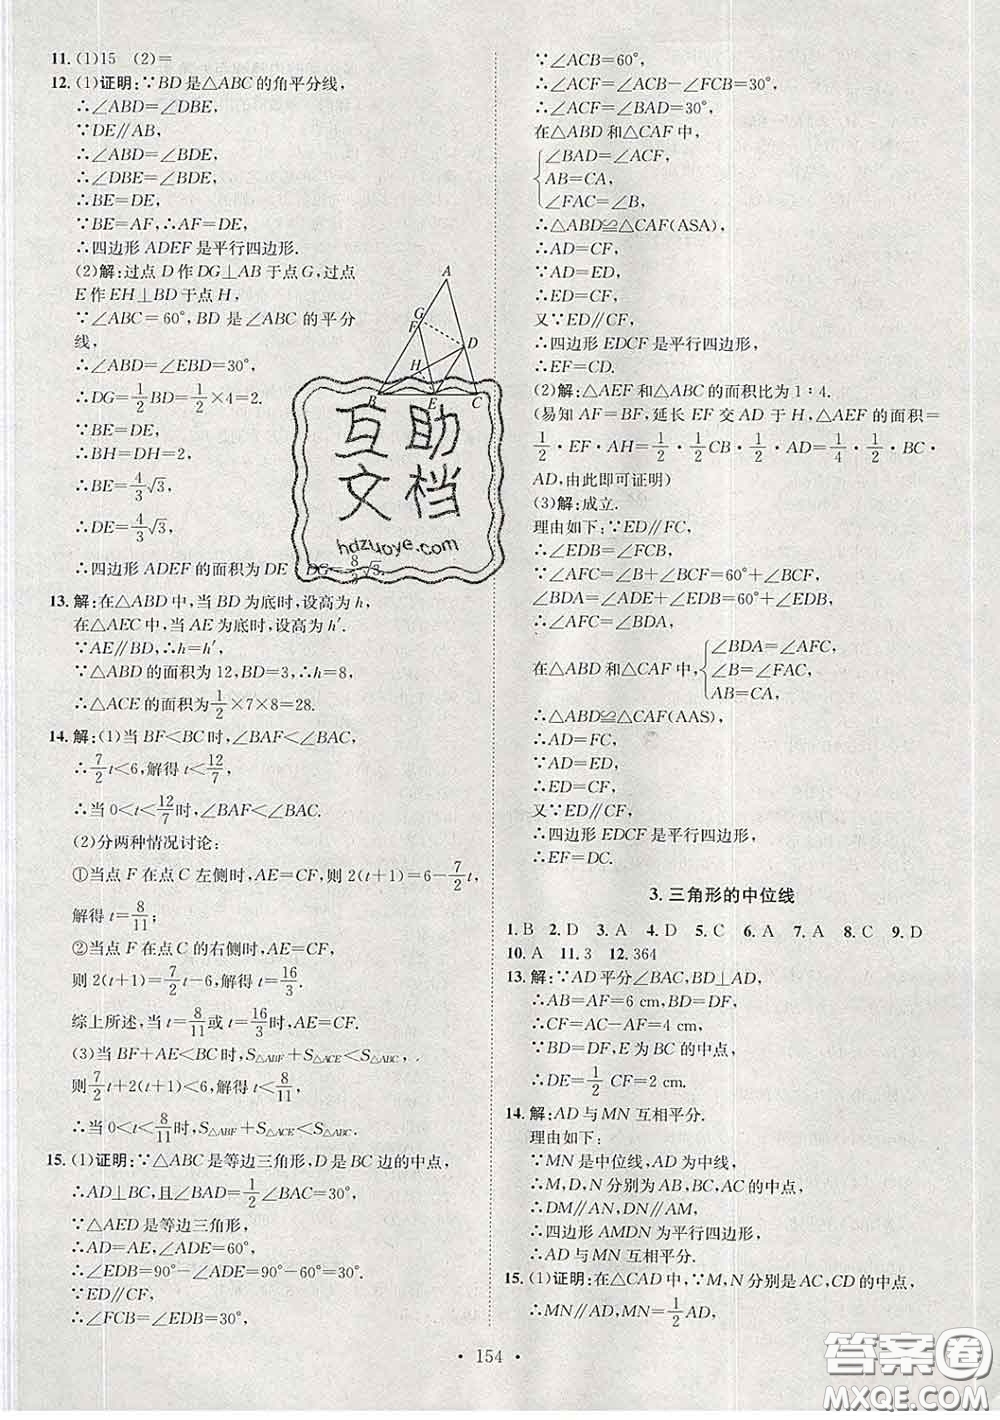 11. (1)15 (2)=
12. (1)证明:∵BD是△ABC的角平分线,
∴∠ABD=∠DBE,
∵DE∥AB,
∴∠ABD=∠BDE,
∴∠DBE=∠BDE,
∴BE=DE,
∵BE=AF,∴AF=DE,
∴四边形 ADEF 是平行四边形.
(2)解:过点 D 作 DG⊥AB 于点 G,过点
E 作 EH⊥BD 于点 H,
∵∠ABC=60°,BD 是∠ABC 的平分
线,
∴∠ABD=∠EBD=30°,
∴DG=1/2 BD=1/2×4=2.
∵BE=DE,
∴BH=DH=2,
∴BE=4/3√3,
∴DE=4/3√3,
∴四边形 ADEF 的面积为 DE · DG=8/3√3.
A
G
F
D
H
B E C
13. 解:在△ABD 中,当 BD 为底时,设高为 h,
在△AEC 中,当 AE 为底时,设高为 h′.
∵AE∥BD,∴h=h′,
∵△ABD 的面积为 12,BD=3,∴h=8,
∴△ACE 的面积为1/2×7×8=28.
14. 解:(1)当 BF<BC 时,∠BAF<∠BAC,
∴7/2 t<6,解得 t<12/7,
∴当 0<t<12/7时,∠BAF<∠BAC.
(2)分两种情况讨论:
①当点 F 在点 C 左侧时,AE=CF,则 2(t+1)=6-7/2 t,
解得 t=8/11;
②当点 F 在点 C 的右侧时,AE=CF,
则 2(t+1)=7/2 t-6,解得 t=16/3.
综上所述,当 t=8/11或 t=16/3时,AE=CF.
(3)当 BF+AE<BC 时,S△ABF+S△ACE<S△ABC,
则7/2 t+2(t+1)<6,解得 t<8/11,
∴当 0<t<8/11时,S△ABF+S△ACE<S△ABC.
15. (1)证明:∵△ABC 是等边三角形,D 是 BC 边的中点,
∴AD⊥BC,且∠BAD=1/2∠BAC=30°,
∵△AED 是等边三角形,
∴AD=AE,∠ADE=60°,
∴∠EDB=90°-∠ADE=90°-60°=30°,
∵ED∥CF,
∴∠FCB=∠EDB=30°,
∵∠ACB=60°,
∴∠ACF=∠ACB-∠FCB=30°,
∴∠ACF=∠BAD=30°,
在△ABD 和△CAF 中,
∠BAD=∠ACF,
AB=CA,
∠FAC=∠B,
∴△ABD≌△CAF(ASA),
∴AD=CF,
∵AD=ED,
∴ED=CF,
又∵ED∥CF,
∴四边形 EDCF 是平行四边形,
∴EF=CD.
(2)解:△AEF 和△ABC 的面积比为 1∶4.
(易知 AF=BF,延长 EF 交 AD 于 H,△AEF 的面积=
1/2 · EF · AH=1/2 · 1/2 CB · 1/2 · AD=1/4 · 1/2 · BC ·
AD,由此即可证明)
(3)解:成立.
理由如下:∵ED∥FC,
∴∠EDB=∠FCB,
∵∠AFC=∠B+∠BCF=60°+∠BCF,
∠BDA=∠ADE+∠EDB=60°+∠EDB,
∴∠AFC=∠BDA,
在△ABD 和△CAF 中,
∠BDA=∠AFC,
∠B=∠FAC,
AB=CA,
∴△ABD≌△CAF(AAS),
∴AD=FC,
∵AD=ED,
∴ED=CF,
又∵ED∥CF,
∴四边形 EDCF 是平行四边形,
∴EF=DC.
3. 三角形的中位线
1. B 2. D 3. A 4. D 5. C 6. A 7. A 8. C 9. D
10. A 11. 3 12. 364
13. 解:∵AD 平分∠BAC,BD⊥AD,
∴AB=AF=6 cm,BD=DF,
∴CF=AC-AF=4 cm,
∵BD=DF,E 为 BC 的中点,
∴DE=1/2 CF=2 cm.
14. 解:AD 与 MN 互相平分.
理由如下:
∵MN 是中位线,AD 为中线,
∴M,D,N 分别为 AB,BC,AC 的中点,
∴DM∥AN,DN∥AM,
∴四边形 AMDN 为平行四边形,
∴AD 与 MN 互相平分.
15. (1)证明:在△CAD 中,∵M,N 分别是 AC,CD 的中点,
∴MN∥AD,MN=1/2 AD,
• 154 •
互助
文档
hdzuoye.com
答案圈
MXQE.COM